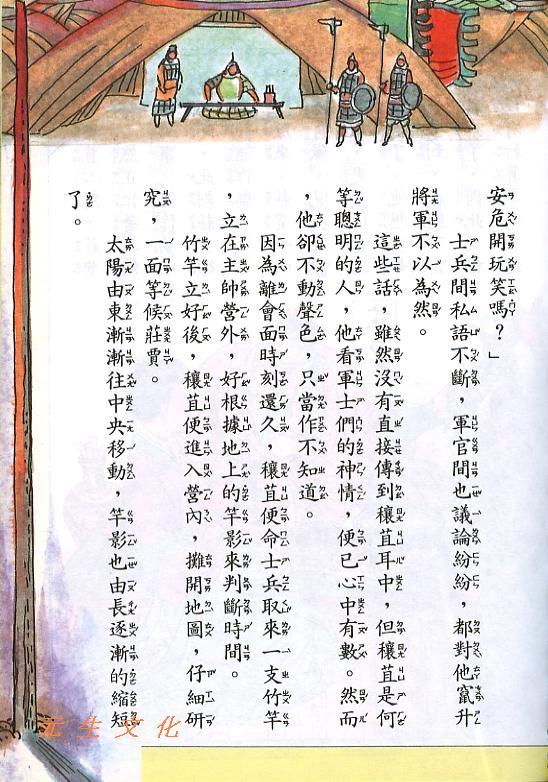 安危開玩笑嗎？」
士兵間私語不斷，軍官間也議論紛紛，都對他竄升
將軍不以為然。
這些話，雖然沒有直接傳到穰苴耳中，但穰苴是何
等聰明的人，他看軍士們的神情，便已心中有數。然而
，他卻不動聲色，只當作不知道。
因為離會面時刻還久，穰苴便命士兵取來一支竹竿
，立在主帥營外，好根據地上的竿影來判斷時間。
竹竿立好後，穰苴便進入營內，攤開地圖，仔細研
究，一面等候莊賈。
太陽由東漸漸往中央移動，竿影也由長逐漸的縮短
了。
元生文化